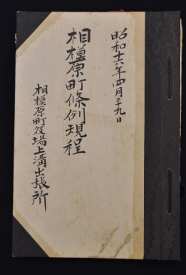 昭和十六年四月二十九日
相模原町條例規程
相模原町役場上溝出張所